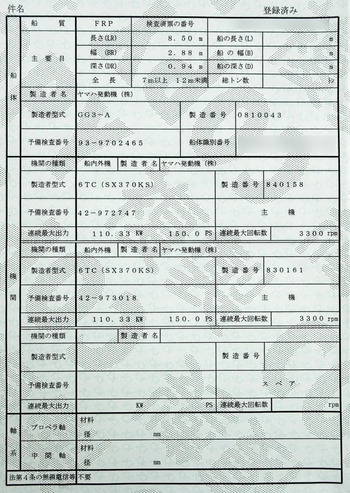 件名
登録済み
船質 FRP 検査済票の番号
船体 主要目 長さ(LR) 8.50 m 船の長さ(L) m
幅 (BR) 2.88 m 船の幅(B) m
深さ(DR) 0.94 m 船の深さ(D) m
全長 7m以上 12m未満 総トン数 トン
製造者名 ヤマハ発動機(株)
製造者型式 GG3-A 製造番号 0810043
予備検査番号 93-9702465 船体識別番号
機関 機関の種類 船内外機 製造者名 ヤマハ発動機(株)
製造者型式 6TC(SX370KS) 製造番号 840158
予備検査番号 42-972747 主機
連続最大出力 110.33 KW 150.0 PS 連続最大回転数 3300 rpm
機関の種類 船内外機 製造者名 ヤマハ発動機(株)
製造者型式 6TC(SX370KS) 製造番号 830161
予備検査番号 42-973018 主機
連続最大出力 110.33 KW 150.0 PS 連続最大回転数 3300 rpm
機関の種類 製造者名
製造者型式 製造番号
予備検査番号 スペア
連続最大出力 KW PS 連続最大回転数 rpm
軸系 プロペラ軸 材料
径 mm
中間軸 材料
径 mm
法第4条の無線電信等 不要